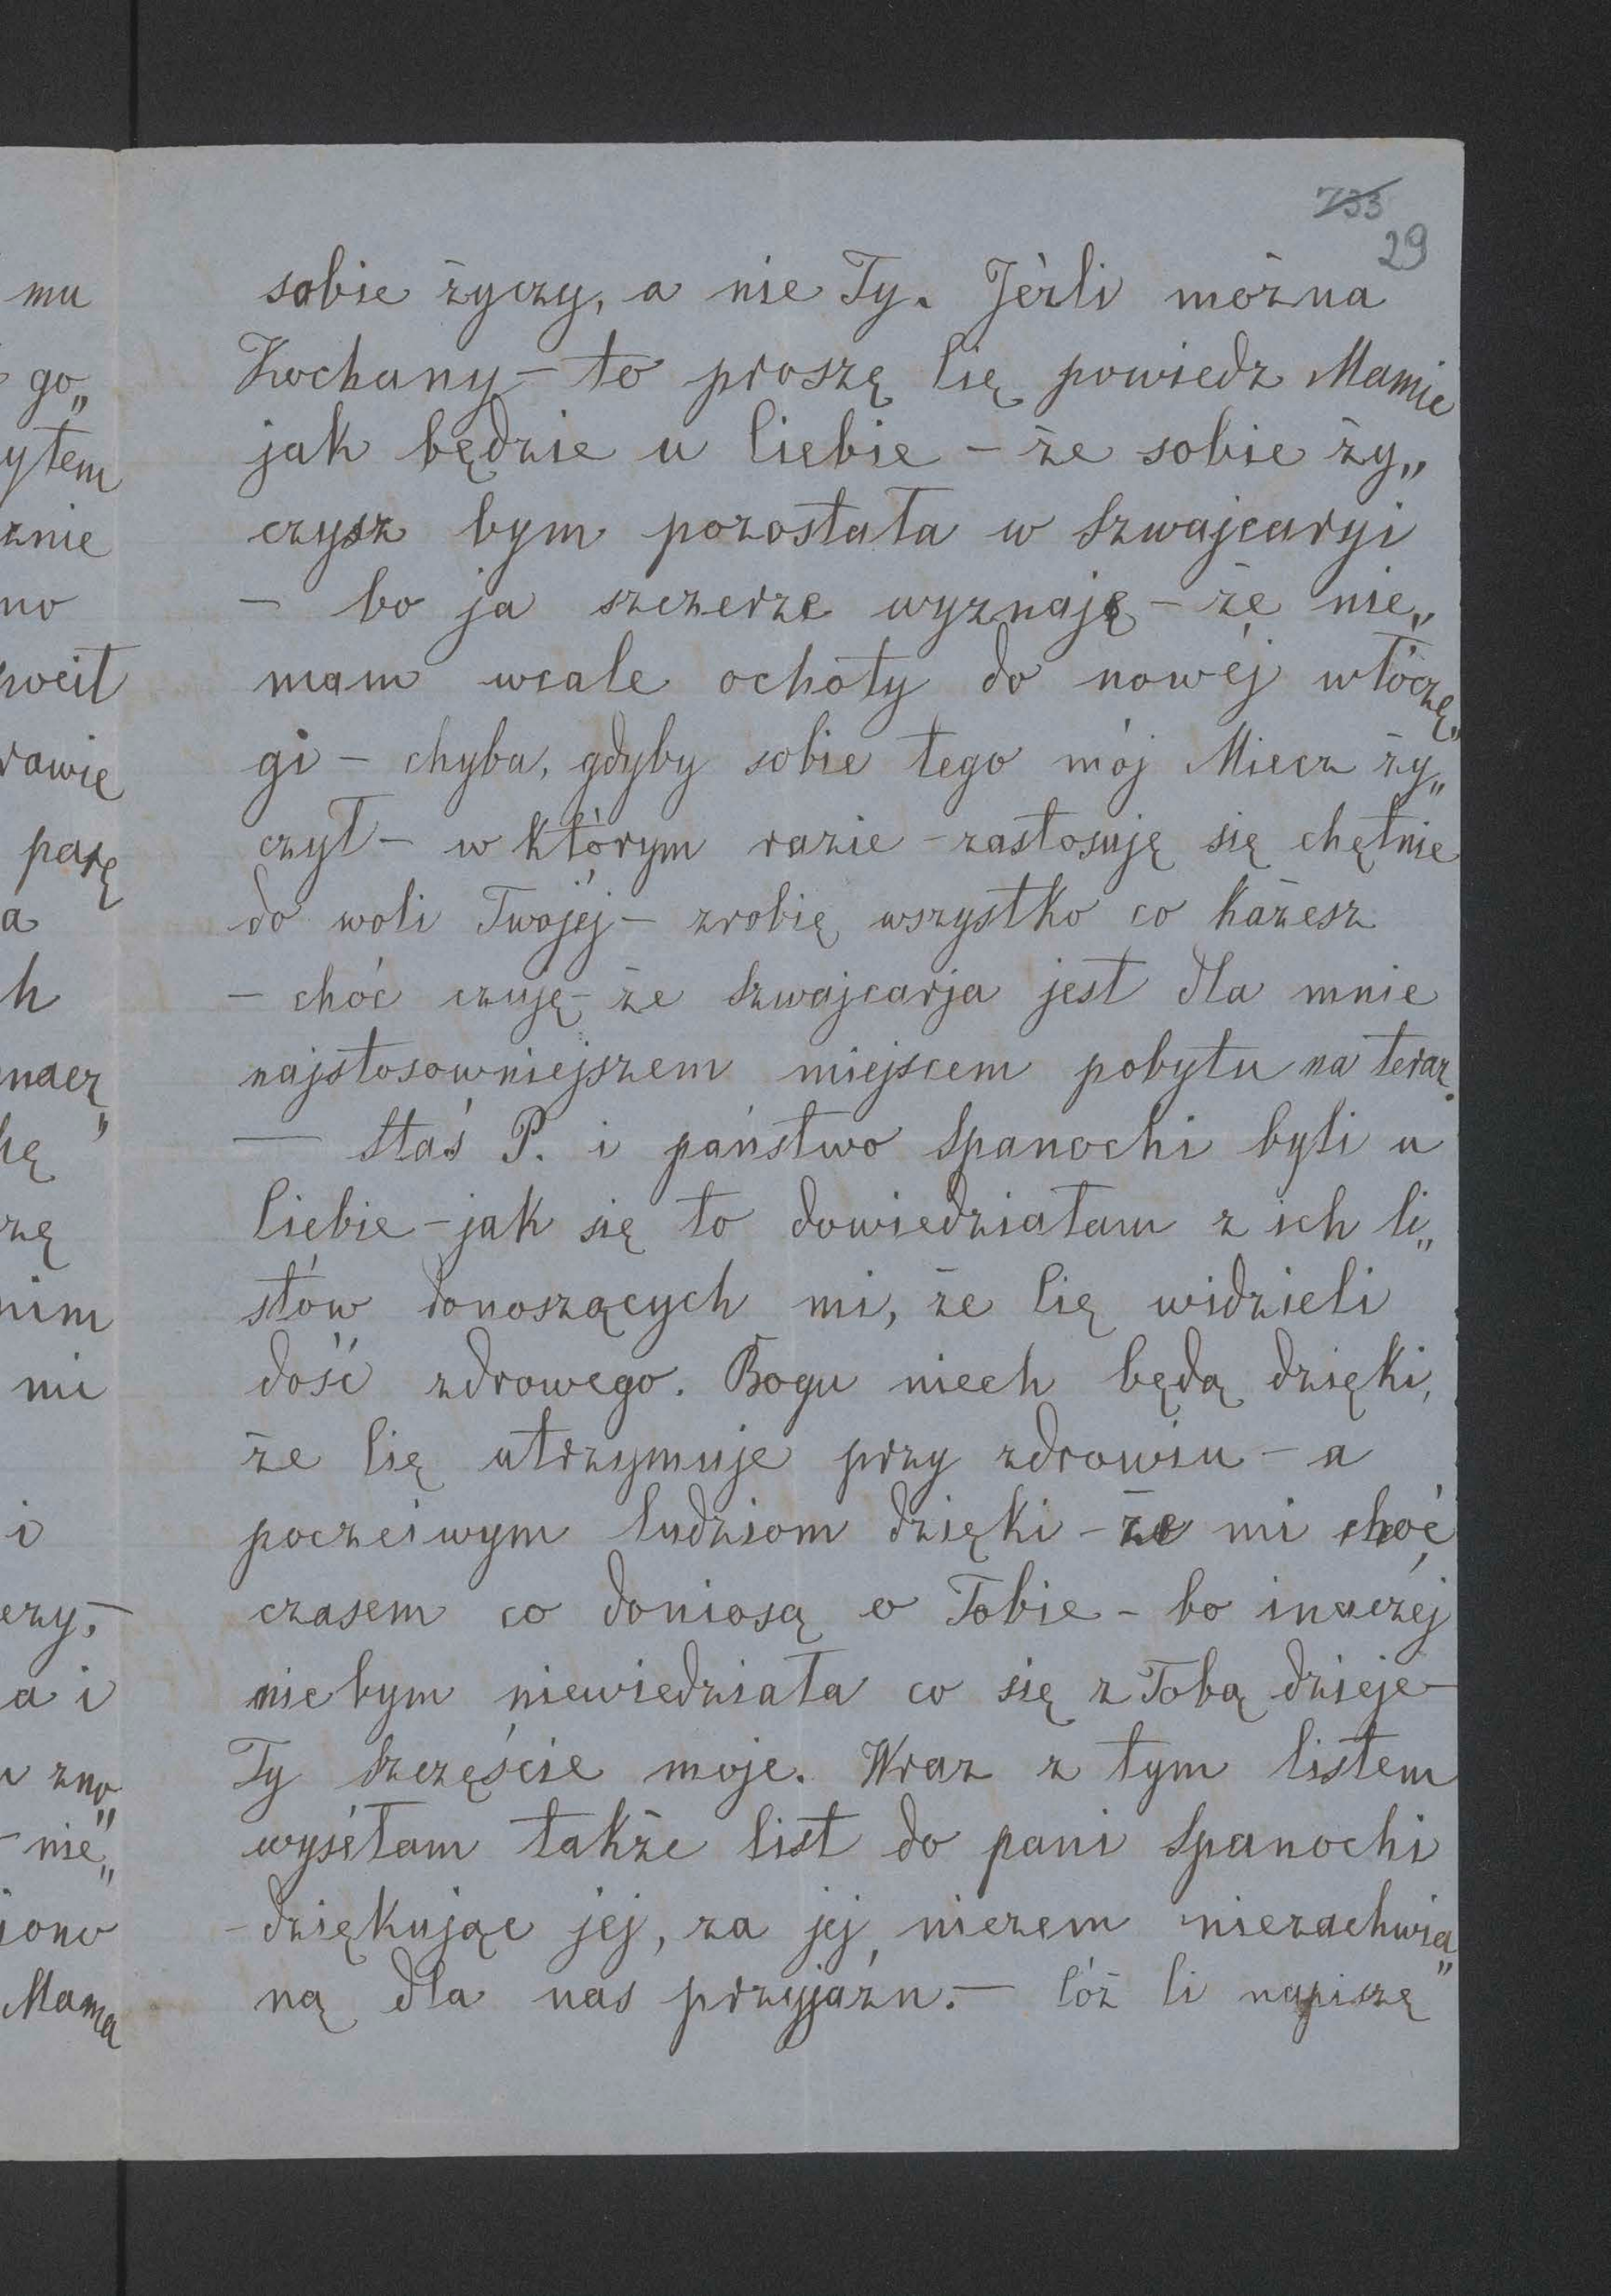 733
29
sobie życzy, a nie Ty. Jéżli można
Kochany – to proszę Cię powiedz Mamie
jak będzie u Ciebie – że sobie ży„
czysz bym pozostała w Szwajcaryi
– bo ja szczerze wyznaję – że nie„
mam wcale ochoty do nowéj włóczę„
gi – chyba, gdyby sobie tego mój Miecz ży„
czył – w którym razie – zastosuję się chętnie
do woli Twojéj – zrobię wszystko co każesz
– choć czuję – że Szwajcarja jest dla mnie
najstosowniejszem miejscem pobytu na teraz.
— Staś P. i państwo Spanochi byli u
Ciebie – jak się to dowiedziałam z ich li„
stów donoszących mi, że Cię widzieli
dość zdrowego. Bogu niech będą dzięki,
że Cię utrzymuje przy zdrowiu – a
poczciwym ludziom dzięki – że mi choć
czasem co doniosą o Tobie – bo inaczéj
nicbym niewiedziała co się z Tobą dzieje –
Ty szczęście moje. Wraz z tym listem
wysełam także list do pani Spanochi
– dziękując jéj, za jéj niczem niezachwia„
ną dla nas przyjaźń. — Cóż Ci napiszę
mu
go„
ytem
znie
no
rawię
parę
a
h
nacz„
hę
zę
nim
mi
i
czy, –
a i
zno„
– nie„
iono
Mamą